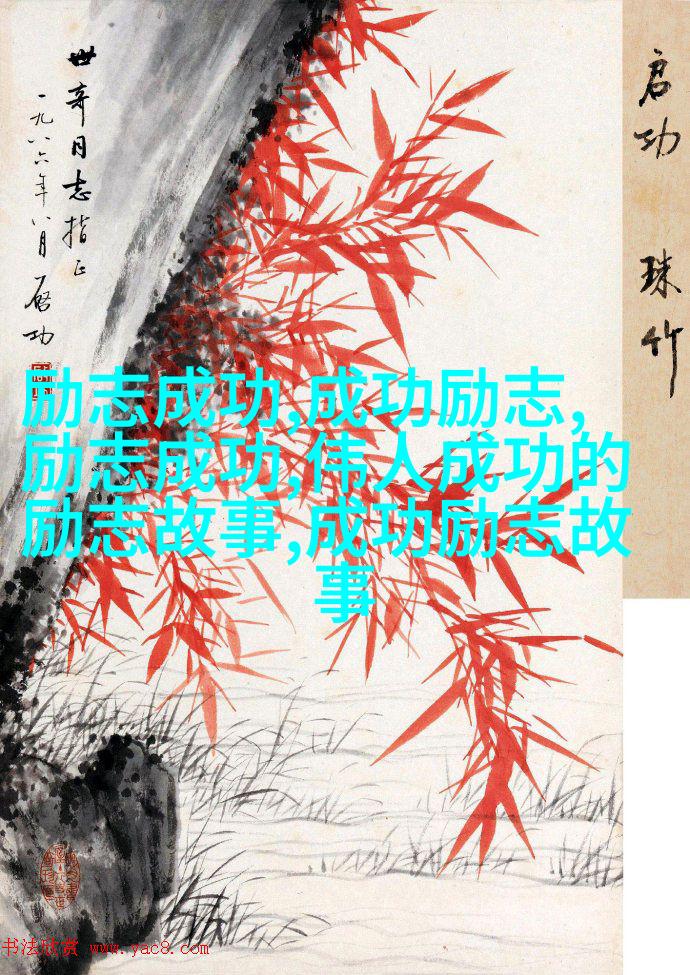 世奇同志指正
一九八六年八月 启功
启功 珠竹
励志成功,成功励志,
励志成功,伟人成功的
励志故事,成功励志故
事
书法欣赏 www.yac8.com